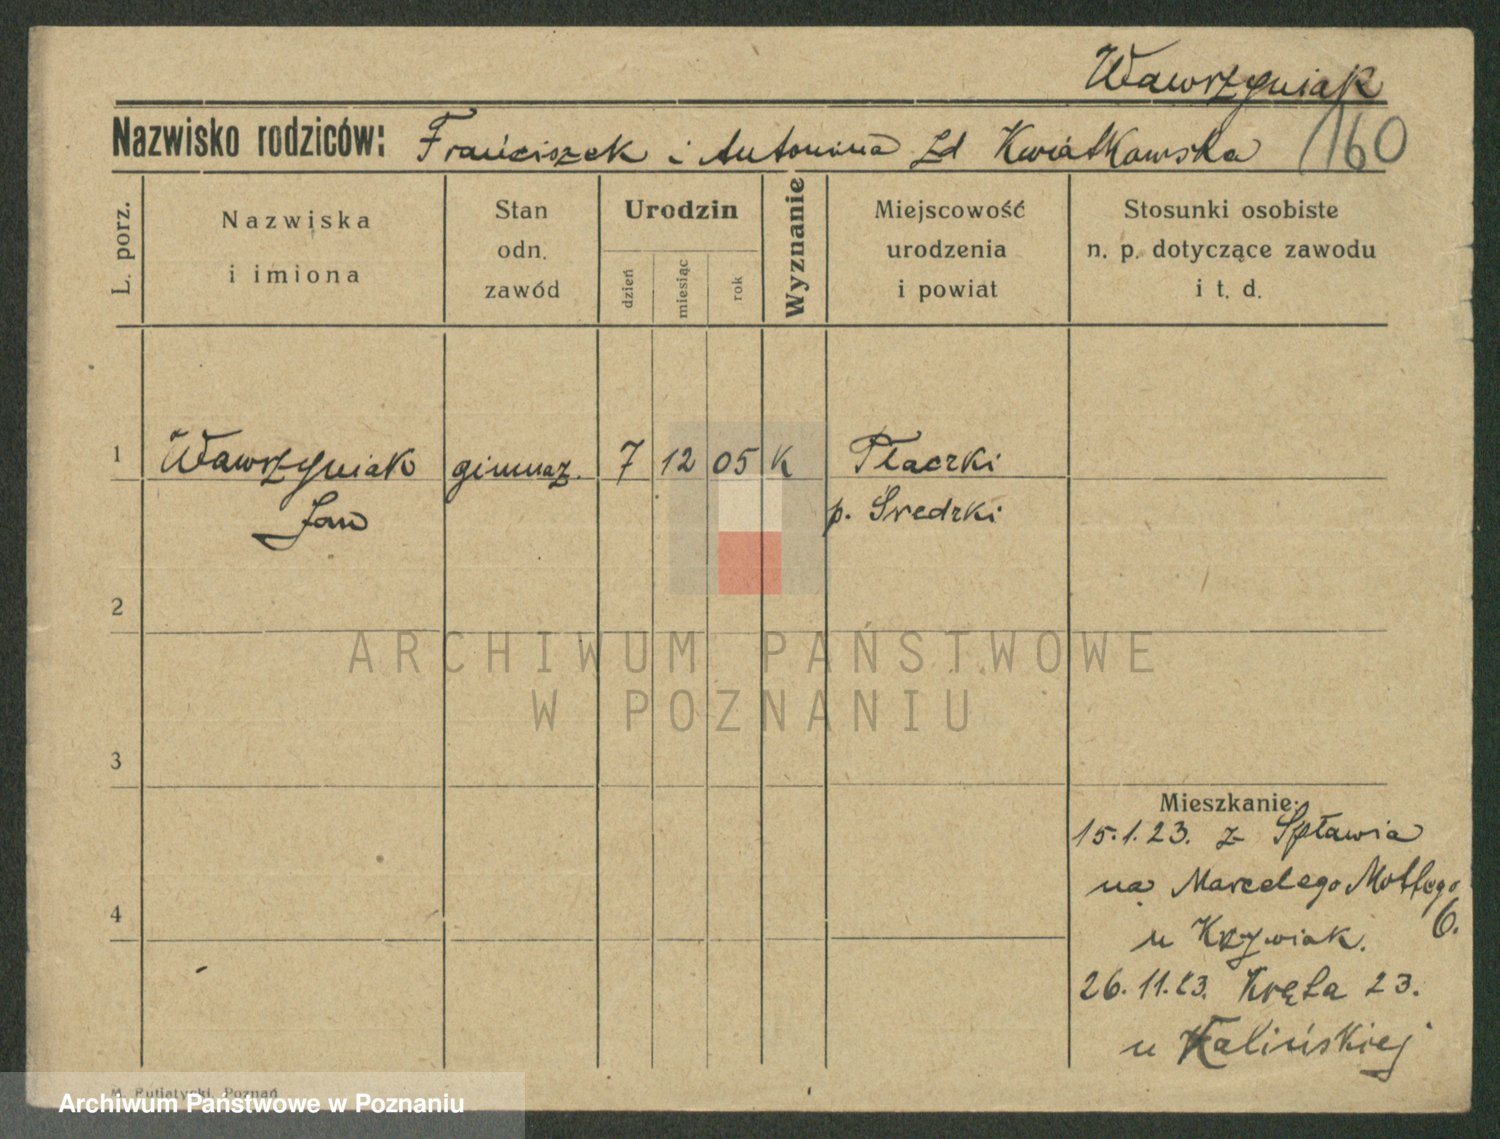 Wawrzyniak
Nazwisko rodziców: Franciszek i Antonina zd Kwiatkowska 160
L. porz.
Nazwiska
i imiona
Stan
odn.
zawód
Urodzin
dzień
miesiąc
rok
Wyznanie
Miejscowość
urodzenia
i powiat
Stosunki osobiste
n. p. dotyczące zawodu
i t. d.
1 Wawrzyniak gimnaz. 7 12 05 K Płaczki
Jan p. Sredzki
2
ARCHIWUM PAŃSTWOWE
W POZNANIU
3
Mieszkanie:
15.1.23. z Spławia
na Marcelego Mottego
6.
u Krzywiak.
26.11.23. Kręta 23.
u Kalińskiej
4
Poznań
Archiwum Państwowe w Poznaniu